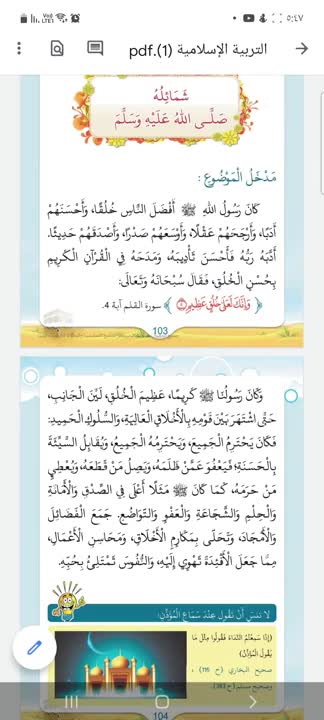 ٥:٤٧
التربية الإسلامية (1).pdf
شَمَائِلُهُ
صَلَّى اللهُ عَلَيْهِ وَسَلَّمَ
مَدْخَلُ الْمَوْضُوعِ :
كَانَ رَسُولُ اللهِ ﷺ أَفْضَلَ النَّاسِ خُلُقًا، وَأَحْسَنَهُمْ
أَدَبًا، وَأَرْجَحَهُمْ عَقْلًا، وَأَوْسَعَهُمْ صَدْرًا، وَأَصْدَقَهُمْ حَدِيثًا.
أَدَّبَهُ رَبُّهُ فَأَحْسَنَ تَأْدِيبَهُ، وَمَدَحَهُ فِي الْقُرْآنِ الْكَرِيمِ
بِحُسْنِ الْخُلُقِ، فَقَالَ سُبْحَانَهُ وَتَعَالَى:
﴿ وَإِنَّكَ لَعَلَىٰ خُلُقٍ عَظِيمٍ ٤ ﴾ سورة القلم آية 4.
103
وَكَانَ رَسُولُنَا ﷺ كَرِيمًا، عَظِيمَ الْخُلُقِ، لَيِّنَ الْجَانِبِ،
حَتَّى اشْتَهَرَ بَيْنَ قَوْمِهِ بِالْأَخْلَاقِ الْعَالِيَةِ، وَالسُّلُوكِ الْحَمِيدِ:
فَكَانَ يَحْتَرِمُ الْجَمِيعَ، وَيَحْتَرِمُهُ الْجَمِيعُ، وَيُقَابِلُ السَّيِّئَةَ
بِالْحَسَنَةِ؛ فَيَعْفُو عَمَّنْ ظَلَمَهُ، وَيَصِلُ مَنْ قَطَعَهُ، وَيُعْطِي
مَنْ حَرَمَهُ، كَمَا كَانَ ﷺ مَثَلًا أَعْلَى فِي الصِّدْقِ وَالْأَمَانَةِ
وَالْحِلْمِ وَالشَّجَاعَةِ وَالْعَفْوِ وَالتَّوَاضُعِ. جَمَعَ الْفَضَائِلَ
وَالْأَمْجَادَ، وَتَحَلَّى بِمَكَارِمِ الْأَخْلَاقِ، وَمَحَاسِنِ الْأَعْمَالِ،
مِمَّا جَعَلَ الْأَفْئِدَةَ تَهْوِي إِلَيْهِ، وَالنُّفُوسَ تَمْتَلِئُ بِحُبِّهِ.
لا تنسَ أن تقول عند سماع المؤذن:
(إِذَا سَمِعْتُمُ النِّدَاءَ فَقُولُوا مِثْلَ مَا
يَقُولُ الْمُؤَذِّنُ)
صحيح البخاري (ح 116) ،
وصحيح مسلم (ح 383).
104